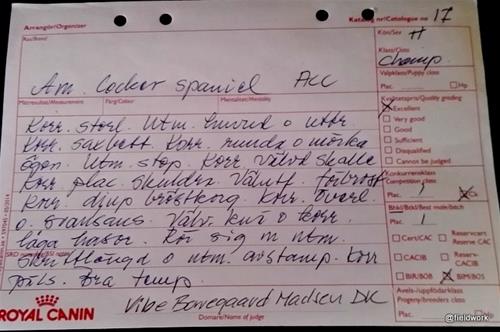 Arrangör/Organizer
Katalog nr/Catalogue no 17
Ras/Breed
Kön/Sex H
Klass/Class
Champ.
Am. Cocker Spaniel Acc
Valpklass/Puppy class
Plac. Hp
Mätresultat/Measurement Färg/Colour Mentalitet/Mentality
Kvalitetspris/Quality grading
Excellent
Very good
Good
Sufficient
Disqualified
Cannot be judged
Korr. storl. Utm. huvud o uttr.
Korr. saxbett. Korr. runda o mörka
ögon. Utm. stop. Korr. välvd skalle
Korr. plac. skuldra. Välutv. förbröst
Korr. djup bröstkorg. Korr. överl.
o. svansans. Välv. knä o korr.
låga hasor. Rör sig m utm.
steglängd o utm. avstamp. Korr
päls. Bra temp.
Konkurrensklass
Competition class
Plac. Ck
Bhkl/Btkl/Best male/bitch
Plac. 1
Cert/CAC
Reservcert
Reserve CAC
CACIB
Reserv-
CACIB
BIR/BOB
BIM/BOS
Avels-/uppfödarklass
Progeny/breeders class
Plac.
ROYAL CANIN
Vibe Borregaard Madsen DK
Domare/Name of judge
@fieldwork